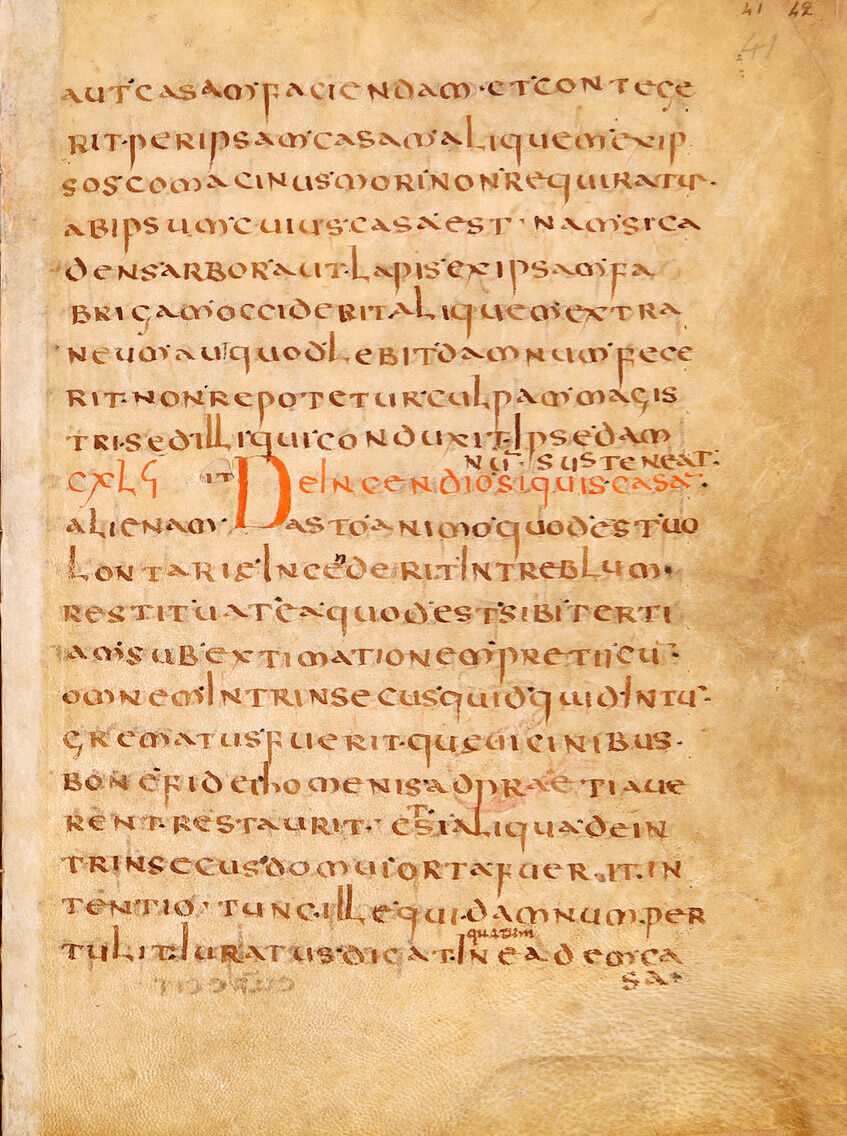 41 42
41
AUT CASAM FACIENDAM · ET CONTEGE
RIT · PER IPSAM CASAM ALIQUEM EX IP
SOS COMACINUS MORI NON REQUIRATUR ·
AB IPSUM CUIUS CASA EST · NAM SI CA
DENS ARBOR AUT LAPIS EX IPSAM FA
BRIGAM OCCIDERIT ALIQUEM EXTRA
NEUM AU QUODLEBIT DAMNUM FECE
RIT · NON REPOTETUR CULPAM MAGIS
TRI · SED ILLI QUI CONDUXIT · IPSE DAM
NU SUSTENEAT ·
CXLG IT DE INCENDIO SI QUIS CASA ·
ALIENAM · ASTO ANIMO QUOD EST UO
LONTARIE INCENDERIT IN TREBLUM ·
RESTITUAT EA QUOD EST SIBI TERTI
AM SUB EXTIMATIONEM PRETII CU ·
OMNEM INTRINSECUS QUIDQUID INTU ·
GREMATUS FUERIT · QUE UICINIBUS ·
BONE FIDEI HOMENIS ADPRAETIAUE
RENT · RESTAURIT · ET SI ALIQUA DE IN
TRINSECUS DOMUI ORTA FUERIT · IN
TENTIO · TUNC ILLE QUI DAMNUM PER
TULIT · IURATUS DICAT · quatum IN EADEM CA
SA ·